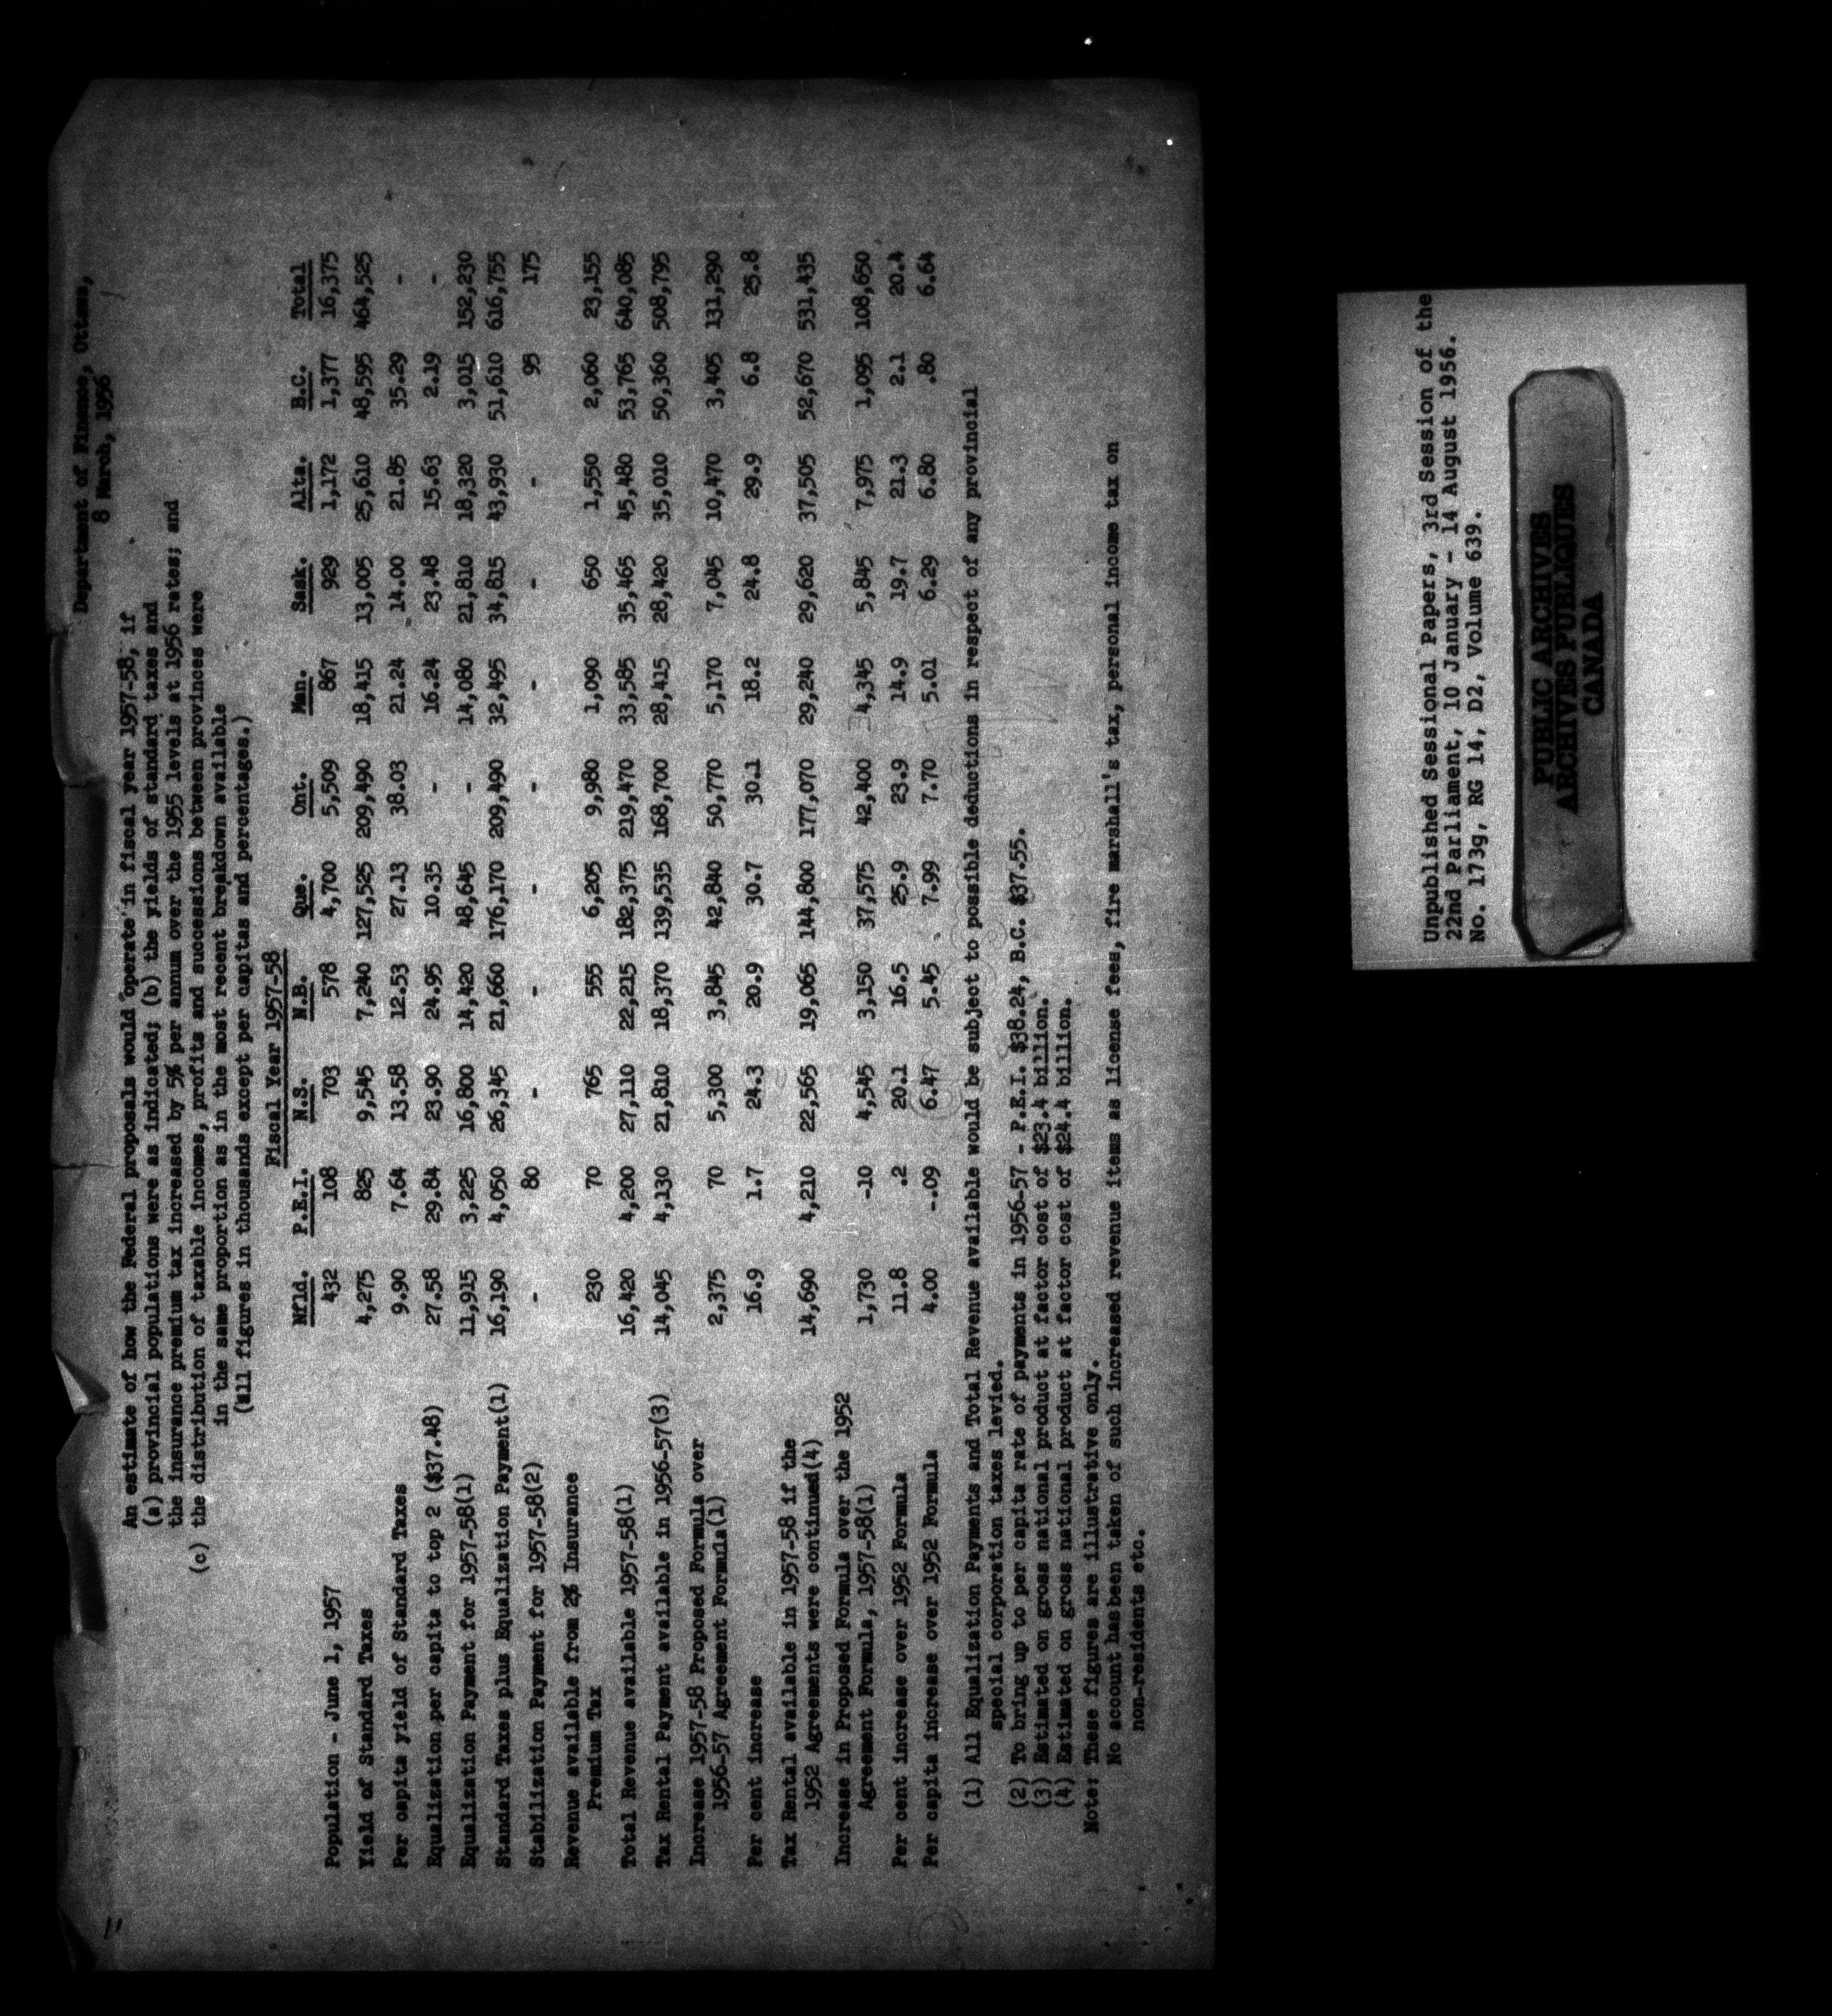 Department of Finance, Ottawa,
8 March, 1956
An estimate of how the Federal proposals would operate in fiscal year 1957-58, if
(a) provincial populations were as indicated; (b) the yields of standard taxes and
the insurance premium tax increased by 5% per annum over the 1955 levels at 1956 rates; and
(c) the distribution of taxable incomes, profits and successions between provinces were
in the same proportion as in the most recent breakdown available
(all figures in thousands except per capitas and percentages.)
Fiscal Year 1957-58
Nfld. P.E.I. N.S. N.B. Que. Ont. Man. Sask. Alta. B.C. Total
Population - June 1, 1957 432 108 703 578 4,700 5,509 867 929 1,172 1,377 16,375
Yield of Standard Taxes 4,275 825 9,545 7,240 127,525 209,490 18,415 13,005 25,610 48,595 464,525
Per capita yield of Standard Taxes 9.90 7.64 13.58 12.53 27.13 38.03 21.24 14.00 21.85 35.29 -
Equalization per capita to top 2 ($37.48) 27.58 29.84 23.90 24.95 10.35 - 16.24 23.48 15.63 2.19 -
Equalization Payment for 1957-58(1) 11,915 3,225 16,800 14,420 48,645 - 14,080 21,810 18,320 3,015 152,230
Standard Taxes plus Equalization Payment(1) 16,190 4,050 26,345 21,660 176,170 209,490 32,495 34,815 43,930 51,610 616,755
Stabilization Payment for 1957-58(2) - 80 - - - - - - - 95 175
Revenue available from 2% Insurance
Premium Tax 230 70 765 555 6,205 9,980 1,090 650 1,550 2,060 23,155
Total Revenue available 1957-58(1) 16,420 4,200 27,110 22,215 182,375 219,470 33,585 35,465 45,480 53,765 640,085
Tax Rental Payment available in 1956-57(3) 14,045 4,130 21,810 18,370 139,535 168,700 28,415 28,420 35,010 50,360 508,795
Increase 1957-58 Proposed Formula over
1956-57 Agreement Formula(1) 2,375 70 5,300 3,845 42,840 50,770 5,170 7,045 10,470 3,405 131,290
Per cent increase 16.9 1.7 24.3 20.9 30.7 30.1 18.2 24.8 29.9 6.8 25.8
Tax Rental available in 1957-58 if the
1952 Agreements were continued(4) 14,690 4,210 22,565 19,065 144,800 177,070 29,240 29,620 37,505 52,670 531,435
Increase in Proposed Formula over the 1952
Agreement Formula, 1957-58(1) 1,730 -10 4,545 3,150 37,575 42,400 4,345 5,845 7,975 1,095 108,650
Per cent increase over 1952 Formula 11.8 .2 20.1 16.5 25.9 23.9 14.9 19.7 21.3 2.1 20.4
Per capita increase over 1952 Formula 4.00 -.09 6.47 5.45 7.99 7.70 5.01 6.29 6.80 .80 6.64
(1) All Equalization Payments and Total Revenue available would be subject to possible deductions in respect of any provincial
special corporation taxes levied.
(2) To bring up to per capita rate of payments in 1956-57 - P.E.I. $38.24, B.C. $37.55.
(3) Estimated on gross national product at factor cost of $23.4 billion.
(4) Estimated on gross national product at factor cost of $24.4 billion.
Note: These figures are illustrative only.
No account hasbeen taken of such increased revenue items as license fees, fire marshall's tax, personal income tax on
non-residents etc.
Unpublished Sessional Papers, 3rd Session of the
22nd Parliament, 10 January - 14 August 1956.
No. 173g, RG 14, D2, Volume 639.
PUBLIC ARCHIVES
ARCHIVES PUBLIQUES
CANADA